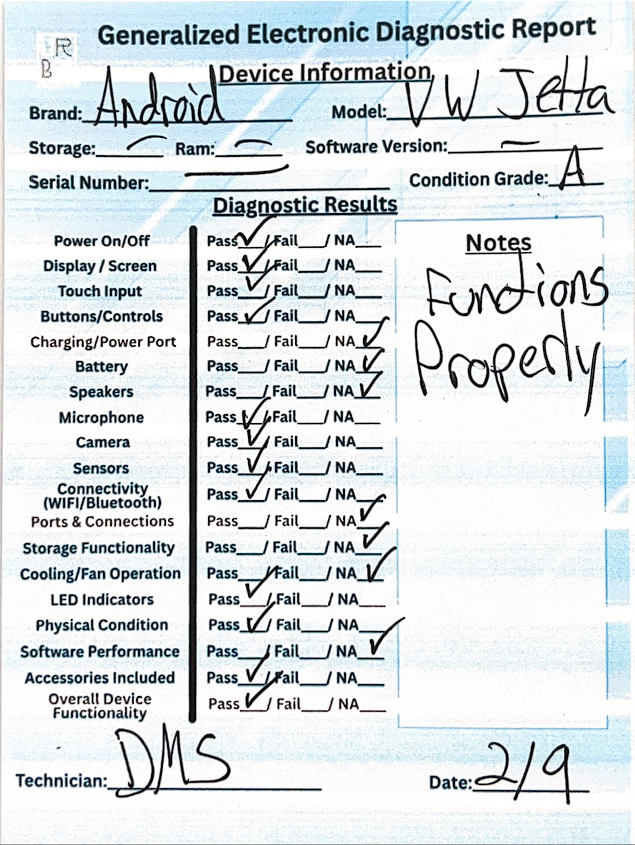 Generalized Electronic Diagnostic Report
R
B
Device Information
Brand: Android Model: VW Jetta
Storage: — Ram: — Software Version: —
Serial Number: — Condition Grade: A
Diagnostic Results
Notes
Functions
Properly
Power On/Off Pass✓/Fail___/ NA___
Display / Screen Pass✓/Fail___/ NA___
Touch Input Pass✓/Fail___/ NA___
Buttons/Controls Pass✓/Fail___/ NA___
Charging/Power Port Pass___/Fail___/ NA✓
Battery Pass___/Fail___/ NA✓
Speakers Pass___/Fail___/ NA✓
Microphone Pass✓/Fail___/ NA___
Camera Pass✓/Fail___/ NA___
Sensors Pass✓/Fail___/ NA___
Connectivity
(WIFI/Bluetooth) Pass✓/Fail___/ NA___
Ports & Connections Pass___/Fail___/ NA✓
Storage Functionality Pass___/Fail___/ NA✓
Cooling/Fan Operation Pass___/Fail___/ NA✓
LED Indicators Pass✓/Fail___/ NA___
Physical Condition Pass✓/Fail___/ NA___
Software Performance Pass___/Fail___/ NA✓
Accessories Included Pass✓/Fail___/ NA___
Overall Device
Functionality Pass✓/Fail___/ NA___
Technician: DMS Date: 2/9